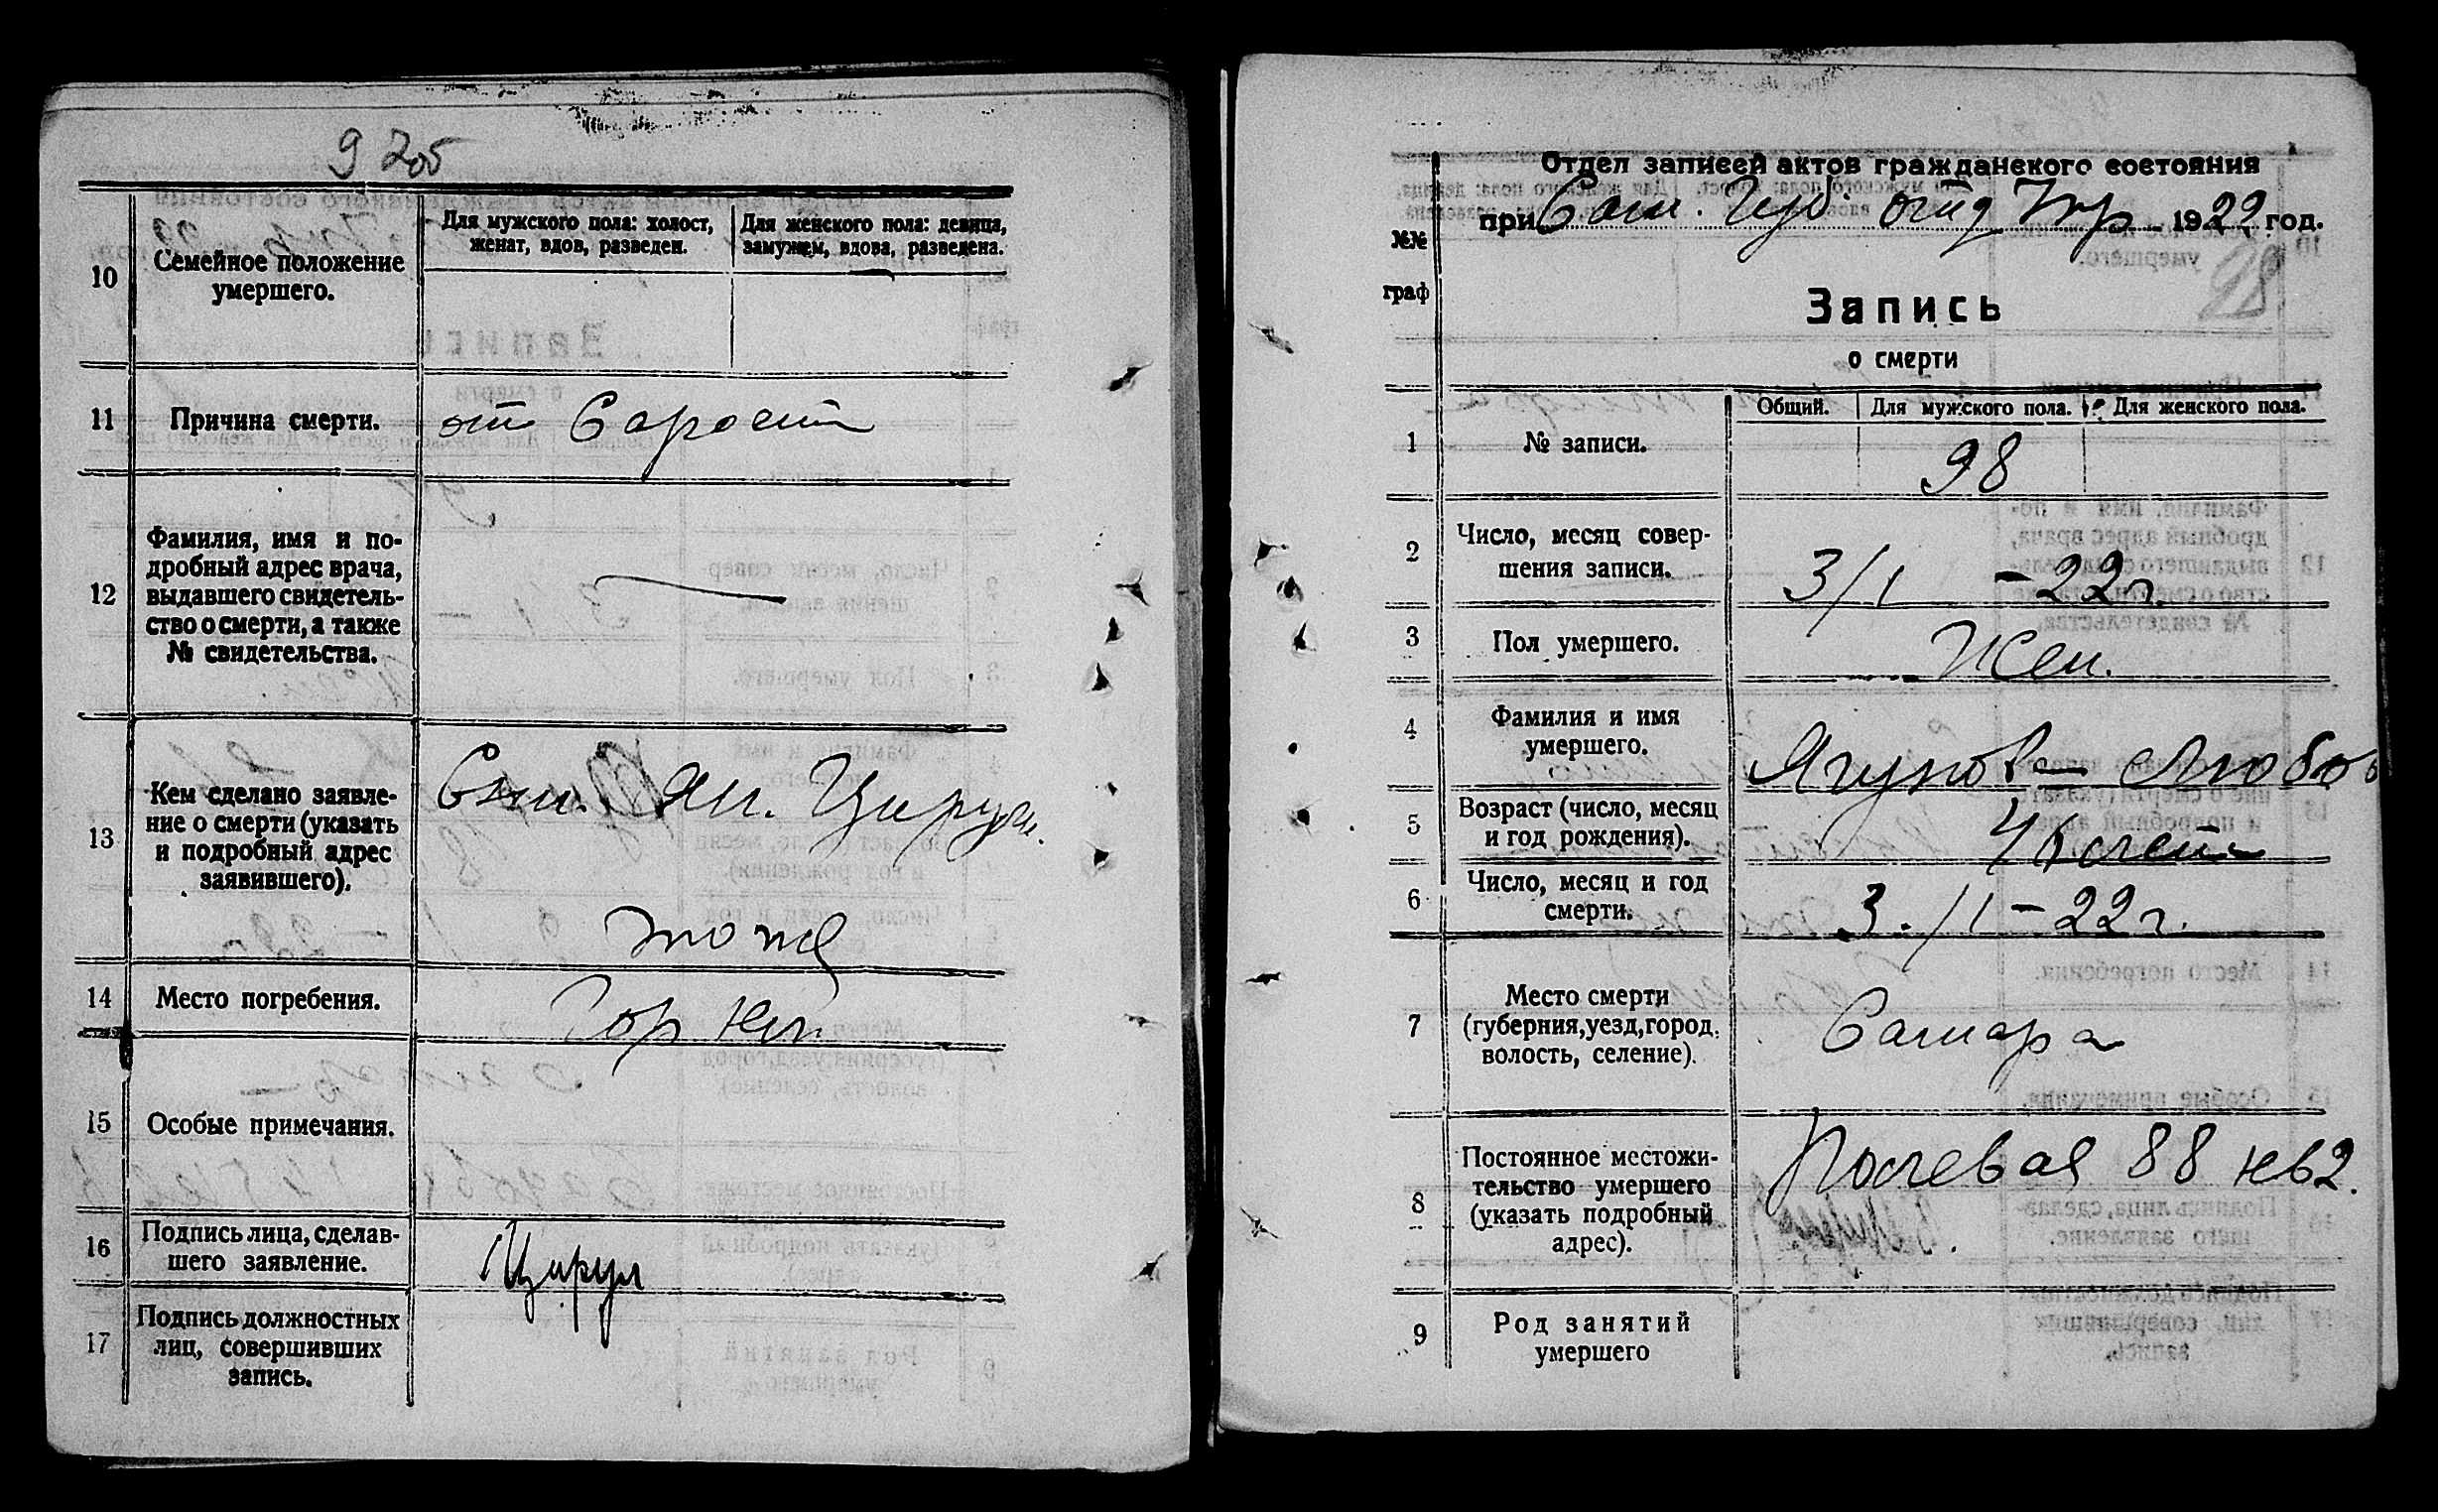 9 2об
10
Семейное положение
умершего.
Для мужского пола: холост,
женат, вдов, разведен.
Для женского пола: девица,
замужем, вдова, разведена.
11
Причина смерти.
от
12
Фамилия, имя и по-
дробный адрес врача,
выдавшего свидетель-
ство о смерти, а также
№ свидетельства.
13
Кем сделано заявле-
ние о смерти (указать
и подробный адрес
заявившего).
Ян. Цируль.
то же
14
Место погребения.
Гор кл.
15
Особые примечания.
16
Подпись лица, сделав-
шего заявление.
Цирул
17
Подпись должностных
лиц, совершивших
запись.
Отдел записей актов гражданского состояния
при Сам. Губ. отд Упр 1922 год.
№№
граф
98
Запись
о смерти
1
№ записи.
Общий.
Для мужского пола.
Для женского пола.
98
2
Число, месяц совер-
шения записи.
3/I – 22 г.
3
Пол умершего.
Жен.
4
Фамилия и имя
умершего.
Любовь
5
Возраст (число, месяц
и год рождения).
лет
6
Число, месяц и год
смерти.
3./I – 22 г.
7
Место смерти
(губерния, уезд, город,
волость, селение).
Самара
8
Постоянное местожи-
тельство умершего
(указать подробный
адрес).
Полевая 88 кв 2.
9
Род занятий
умершего